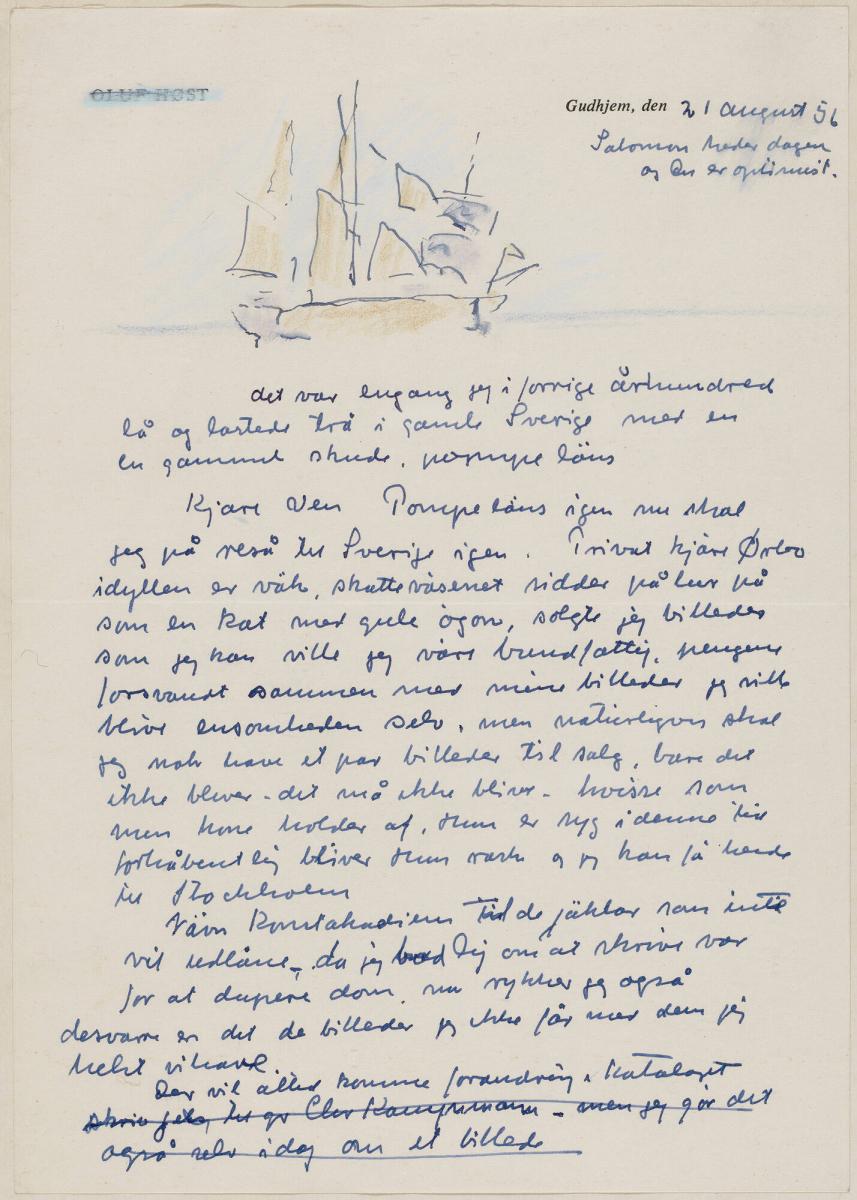 OLUF HØST
Gudhjem, den 21 august 56
Salomon heder dagen
og den er optimist.
det var engang jeg i forrige århundred
lå og lastede trä i gamle Sverige med en
en gammel skude, pompe läns
Kjäre Ven Pompe läns igen nu skal
jeg på reså til Sverige igen. Privat kjäre
idyllen er väk, skattevåsenet sidder på lur på
som en kat med gule ögon, solgte jeg billeder
som jeg kan ville jeg väre bundfattig, pengene
forsvandt sammen med mine billeder jeg ville
blive ensomheden selv, men naturligvis skal
jeg nok have et par billeder til salg, bare det
ikke bliver - det må ikke blive - hvisse som
men kone holder af, hun er syg i denne tid
forhåbentlig bliver hun rask og jeg kan få hende
til Stockholm
Vävn Konstakadiem till de jäklar som inte
vil udlåne - da jeg bad Dig om at skrive var
for at dupere dom, nu rykker jeg også
desvärre er det de billeder jeg ikke får med dem jeg
helst vil have.
Der vil altid komme forandring i Kataloget
skriv til gr Chr Kampmann - men jeg gör det
også selv idag om et billede